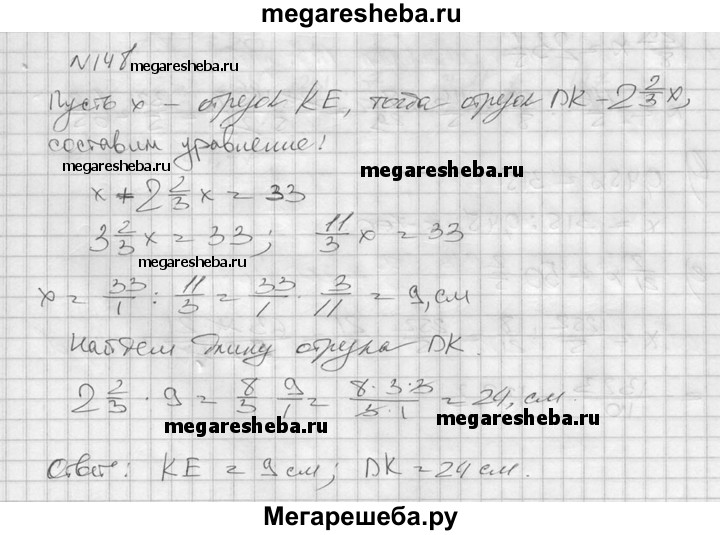 megaresheba.ru
N148 megaresheba.ru
Пусть x – отрезок KE, тогда отрезок DK – 2 2/3 x,
составим уравнение:
megaresheba.ru megaresheba.ru
x + 2 2/3 x = 33
3 2/3 x = 33; 11/3 x = 33
megaresheba.ru
x = 33/1 : 11/3 = 33/1 · 3/11 = 9, см
Найдем длину отрезка DK.
2 2/3 · 9 = 8/3 · 9/1 = 8·3·3/3·1 = 24, см.
megaresheba.ru megaresheba.ru
Ответ: KE = 9 см; DK = 24 см.
Мегарешеба.ру